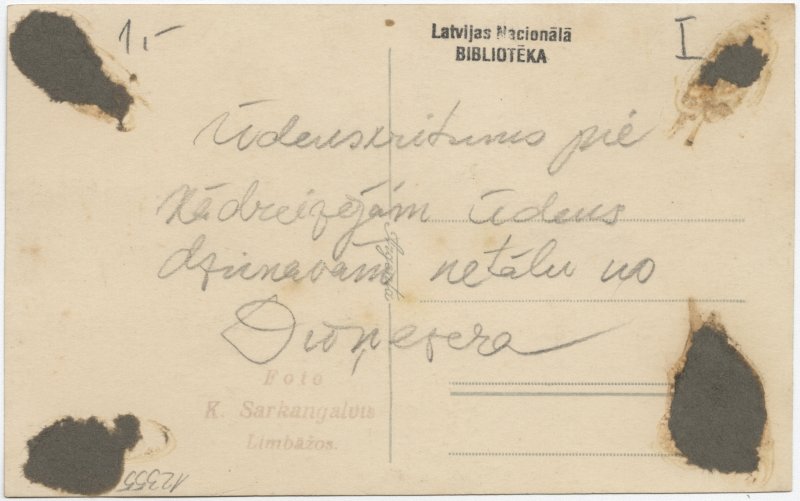 1,-
Latvijas Nacionālā
BIBLIOTĒKA
I
Ūdenskritums pie
Kādreizējām ūdens
dzirnavām netālu no
Duņezera
Foto
K. Sarkangalvis
Limbažos.
12355